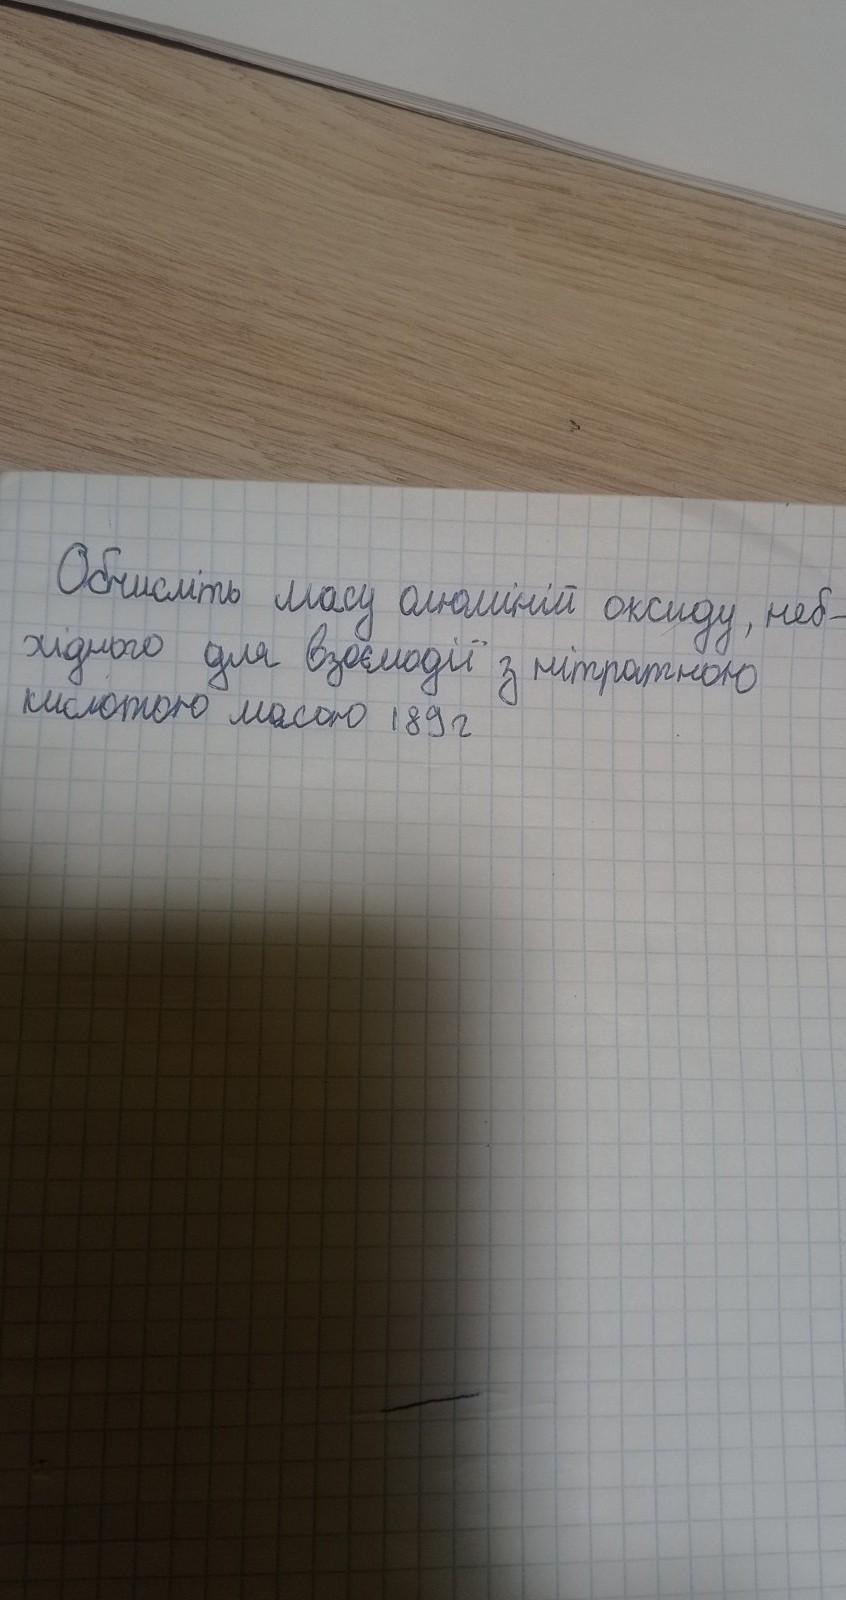 Обчисліть масу алюміній оксиду, необ-
хідного для взаємодії з нітратною
кислотою масою 189 г